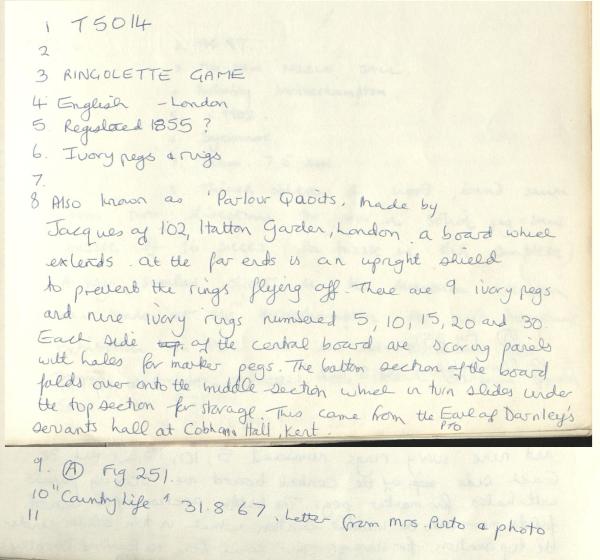 1 T5014
2
3 RINGOLETTE GAME
4 English - London
5. Registered 1855?
6. Ivory pegs & rings
7.
8 Also known as 'Parlour Qaoits. Made by
Jacques of 102, Hatton Garden, London. a board which
extends. at the far ends is an upright shield
to prevent the rings flying off. There are 9 ivory pegs
and nine ivory rings numbered 5, 10, 15, 20 and 30.
Each side of the central board are scoring panels
with holes for marker pegs. The bottom section of the board
folds over onto the middle section which in turn slides under
the top section for storage. This came from the Earl of Darnley's
servants hall at Cobham Hall, Kent. PTO
9. A Fig 251.
10 "Country Life" 31.8.67. Letter from Mrs. Pinto & photo
11